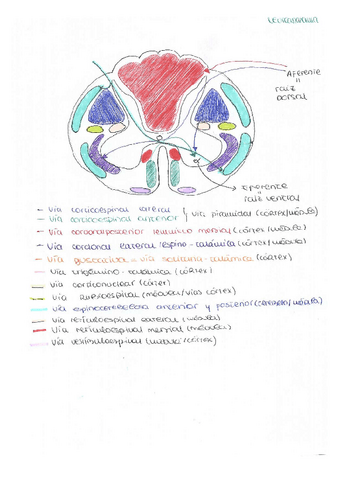 Aferente
=
raíz
dorsal
α
Eferente
=
raíz ventral
- Vía corticoespinal lateral
- Vía corticoespinal anterior
vía piramidal (córtex/médula)
- Vía cordonal posterior lemnisco medial (córtex/médula)
- Vía cordonal lateral espino-talámica (córtex/médula)
- Vía gustativa = vía solitario-talámica (córtex)
- Vía trigémino-talámica (córtex)
- Vía corticonuclear (córtex)
- Vía rubroespinal (médula/vías córtex)
- Vía espinocerebelosa anterior y posterior (cerebelo/médula)
- Vía retículoespinal lateral (médula)
- Vía retículoespinal medial (médula)
- Vía vestibuloespinal (médula/córtex)